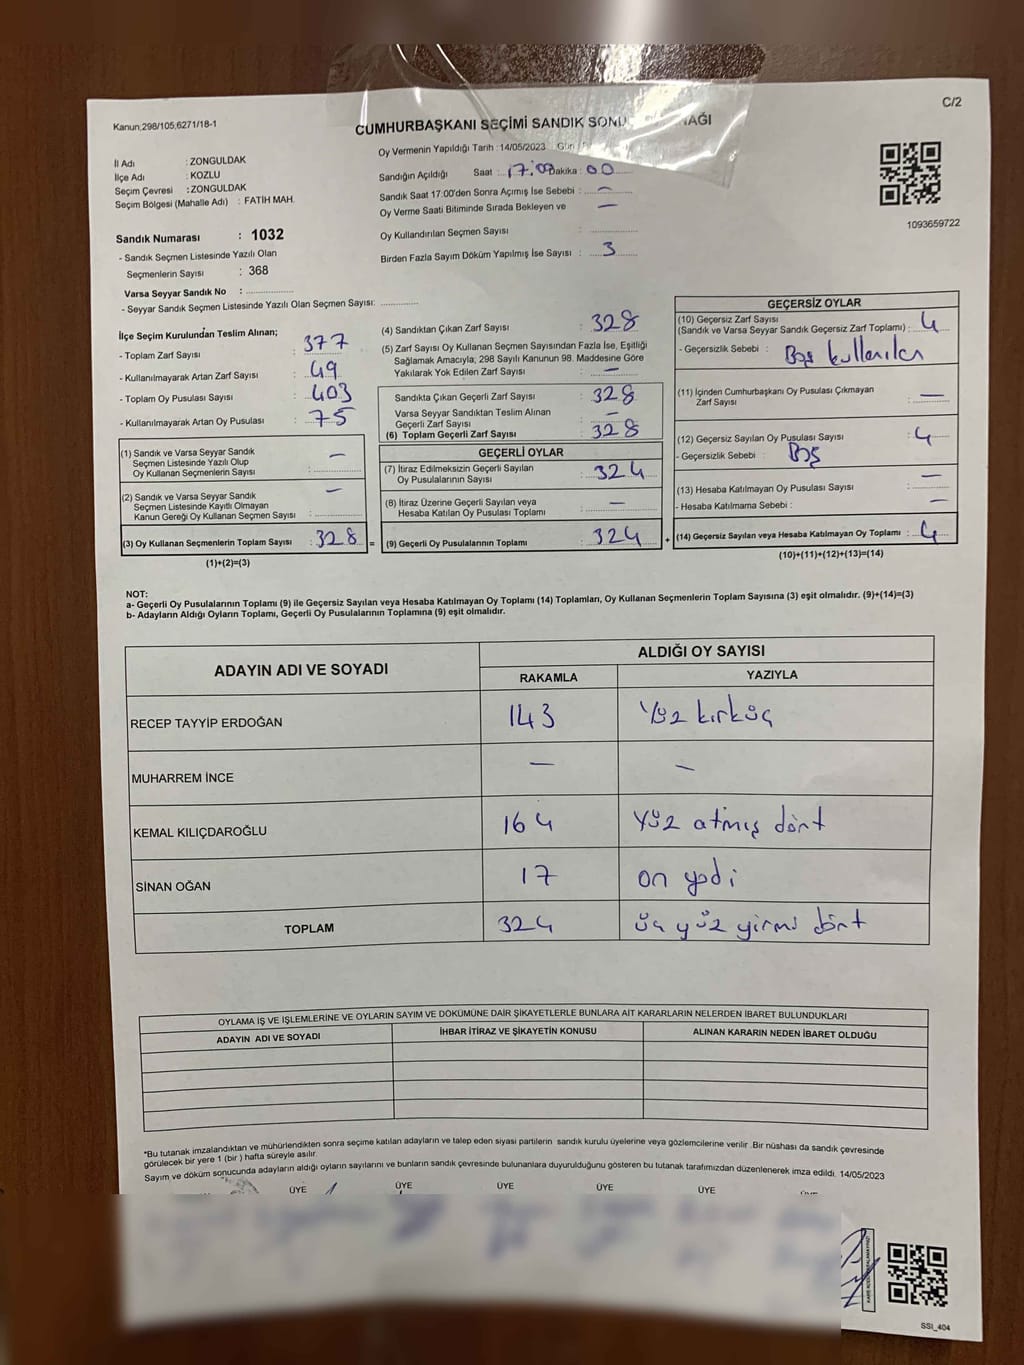 C/2
Kanun;298/105;6271/18-1
CUMHURBAŞKANI SEÇİMİ SANDIK
İl Adı : ZONGULDAK
İlçe Adı : KOZLU
Seçim Çevresi : ZONGULDAK
Seçim Bölgesi (Mahalle Adı) : FATİH MAH.
Sandık Numarası : 1032
- Sandık Seçmen Listesinde Yazılı Olan
Seçmenlerin Sayısı : 368
Varsa Seyyar Sandık No :
- Seyyar Sandık Seçmen Listesinde Yazılı Olan Seçmen Sayısı:
Oy Vermenin Yapıldığı Tarih : 14/05/2023
Sandığın Açıldığı Saat : 17:00 Dakika : 00
Sandık Saat 17:00'den Sonra Açımış İse Sebebi : —
Oy Verme Saati Bitiminde Sırada Bekleyen ve —
Oy Kullandırılan Seçmen Sayısı :
Birden Fazla Sayım Döküm Yapılmış İse Sayısı : 3
1093659722
İlçe Seçim Kurulundan Teslim Alınan;
- Toplam Zarf Sayısı : 377
- Kullanılmayarak Artan Zarf Sayısı : 49
- Toplam Oy Pusulası Sayısı : 403
- Kullanılmayarak Artan Oy Pusulası : 75
(1) Sandık ve Varsa Seyyar Sandık —
Seçmen Listesinde Yazılı Olup
Oy Kullanan Seçmenlerin Sayısı :
(2) Sandık ve Varsa Seyyar Sandık —
Seçmen Listesinde Kayıtlı Olmayan
Kanun Gereği Oy Kullanan Seçmen Sayısı :
(3) Oy Kullanan Seçmenlerin Toplam Sayısı : 328 =
(1)+(2)=(3)
(4) Sandıktan Çıkan Zarf Sayısı : 328
(5) Zarf Sayısı Oy Kullanan Seçmen Sayısından Fazla İse, Eşitliği
Sağlamak Amacıyla; 298 Sayılı Kanunun 98. Maddesine Göre
Yakılarak Yok Edilen Zarf Sayısı : —
Sandıkta Çıkan Geçerli Zarf Sayısı : 328
Varsa Seyyar Sandıktan Teslim Alınan —
Geçerli Zarf Sayısı :
(6) Toplam Geçerli Zarf Sayısı : 328
GEÇERLİ OYLAR
(7) İtiraz Edilmeksizin Geçerli Sayılan
Oy Pusulalarının Sayısı : 324
(8) İtiraz Üzerine Geçerli Sayılan veya —
Hesaba Katılan Oy Pusulası Toplamı :
(9) Geçerli Oy Pusulalarının Toplamı : 324 +
GEÇERSİZ OYLAR
(10) Geçersiz Zarf Sayısı
(Sandık ve Varsa Seyyar Sandık Geçersiz Zarf Toplamı) : 4
- Geçersizlik Sebebi : Boş kullanılan
(11) İçinden Cumhurbaşkanı Oy Pusulası Çıkmayan —
Zarf Sayısı :
(12) Geçersiz Sayılan Oy Pusulası Sayısı : 4
- Geçersizlik Sebebi : Boş
(13) Hesaba Katılmayan Oy Pusulası Sayısı : —
- Hesaba Katılmama Sebebi : —
(14) Geçersiz Sayılan veya Hesaba Katılmayan Oy Toplamı : 4
(10)+(11)+(12)+(13)=(14)
NOT:
a- Geçerli Oy Pusulalarının Toplamı (9) ile Geçersiz Sayılan veya Hesaba Katılmayan Oy Toplamı (14) Toplamları, Oy Kullanan Seçmenlerin Toplam Sayısına (3) eşit olmalıdır. (9)+(14)=(3)
b- Adayların Aldığı Oyların Toplamı, Geçerli Oy Pusulalarının Toplamına (9) eşit olmalıdır.
ADAYIN ADI VE SOYADI ALDIĞI OY SAYISI
RAKAMLA YAZIYLA
RECEP TAYYİP ERDOĞAN 143 Yüz kırküç
MUHARREM İNCE — —
KEMAL KILIÇDAROĞLU 164 yüz atmış dört
SİNAN OĞAN 17 on yedi
TOPLAM 324 üç yüz yirmi dört
OYLAMA İŞ VE İŞLEMLERİNE VE OYLARIN SAYIM VE DÖKÜMÜNE DAİR ŞİKAYETLERLE BUNLARA AİT KARARLARIN NELERDEN İBARET BULUNDUKLARI
ADAYIN ADI VE SOYADI İHBAR İTİRAZ VE ŞİKAYETİN KONUSU ALINAN KARARIN NEDEN İBARET OLDUĞU
*Bu tutanak imzalandıktan ve mühürlendikten sonra seçime katılan adayların ve talep eden siyasi partilerin sandık kurulu üyelerine veya gözlemcilerine verilir .Bir nüshası da sandık çevresinde
görülecek bir yere 1 (bir ) hafta süreyle asılır.
Sayım ve döküm sonucunda adayların aldığı oyların sayılarını ve bunların sandık çevresinde bulunanlara duyurulduğunu gösteren bu tutanak tarafımızdan düzenlenerek imza edildi. 14/05/2023
ÜYE ÜYE ÜYE ÜYE ÜYE
SSI_404